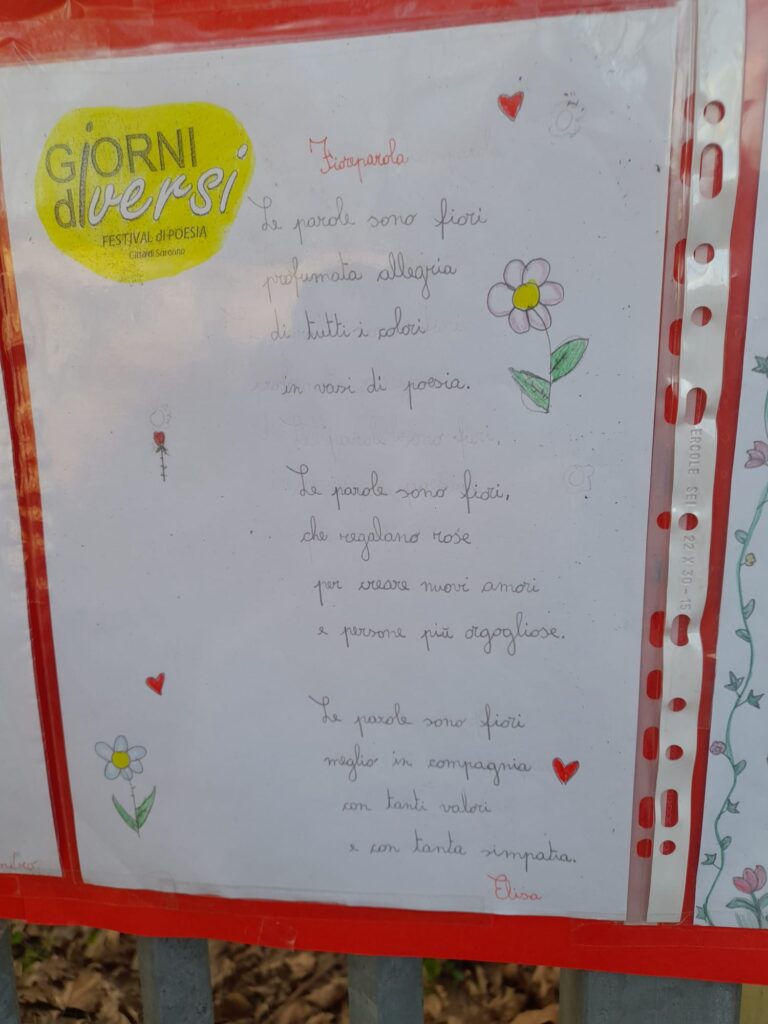 GiORNI
diversi
FESTIVAL di POESIA
Città di Saronno
Fioreparola
Le parole sono fiori
profumata allegria
di tutti i colori
in vasi di poesia.
Le parole sono fiori,
che regalano rose
per creare nuovi amori
e persone più orgogliose.
Le parole sono fiori
meglio in compagnia
con tanti valori
e con tanta simpatia.
Elisa
ERCOLE SEI 22 X 30 - 15